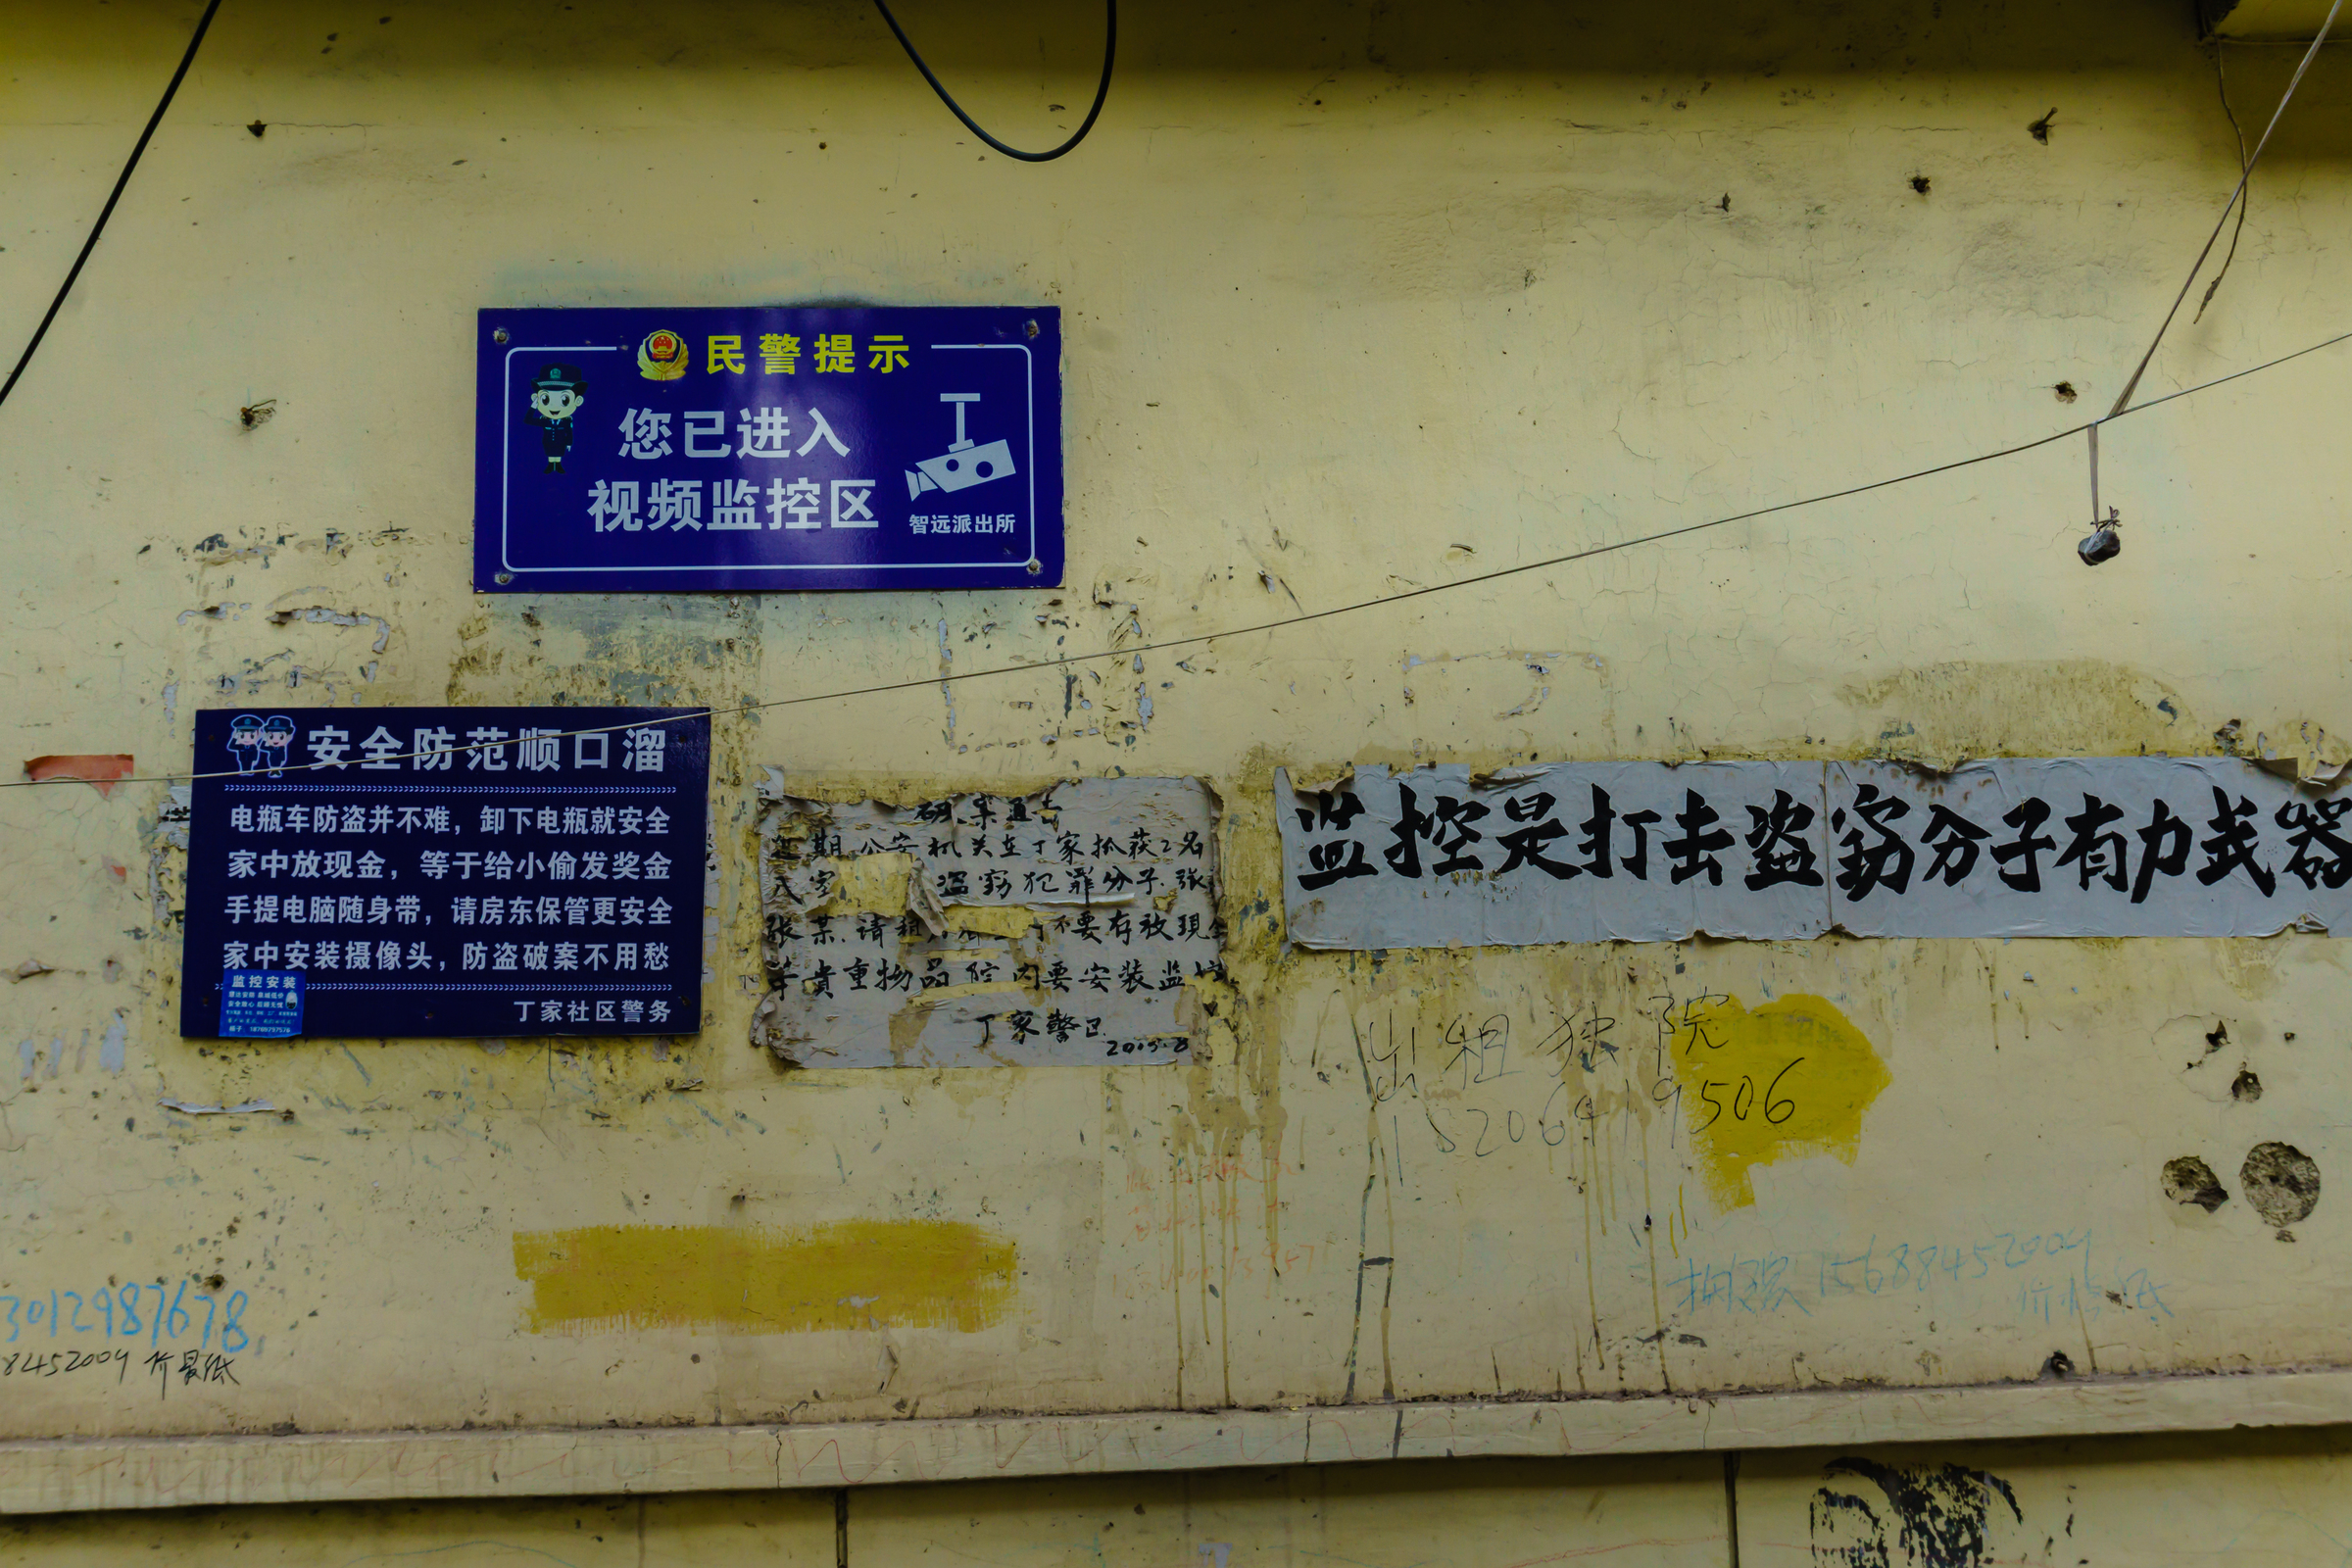 民警提示
您已进入
视频监控区
智远派出所
安全防范顺口溜
电瓶车防盗并不难，卸下电瓶就安全
家中放现金，等于给小偷发奖金
手提电脑随身带，请房东保管更安全
家中安装摄像头，防盗破案不用愁
丁家社区警务
监控安装
期公安机关在丁家抓获2名
入室 盗窃犯罪分子张
张某.请租 不要存放現金
等貴重物品院内要安装监控
丁家警区
2015.8
监控是打击盗窃分子有力武器
出租独院
15206419506
15688452009
价格低
3012987678
8452009 价最低